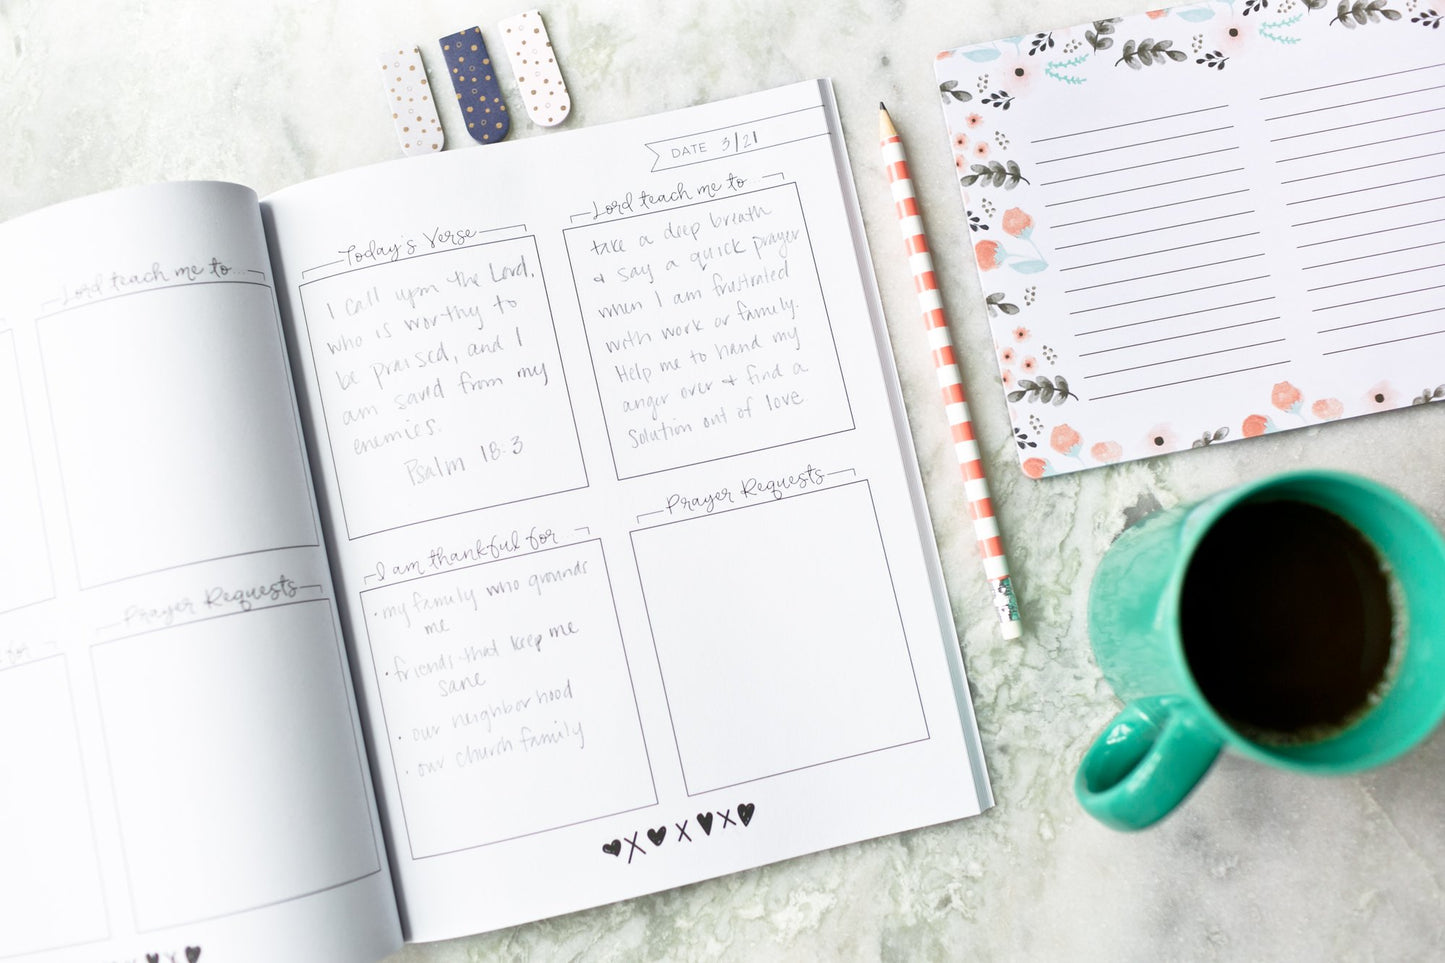 Lord teach me to...
Prayer Requests
for
DATE 3/21
Today's Verse
I call upon the Lord,
who is worthy to
be praised, and I
am saved from my
enemies.
Psalm 18:3
Lord teach me to
take a deep breath
& say a quick prayer
when I am frustrated
with work or family.
Help me to hand my
anger over & find a
solution out of love.
I am thankful for...
• my family who grounds
me
• friends that keep me
sane
• our neighborhood
• our church family
Prayer Requests
♥X♥X♥X♥